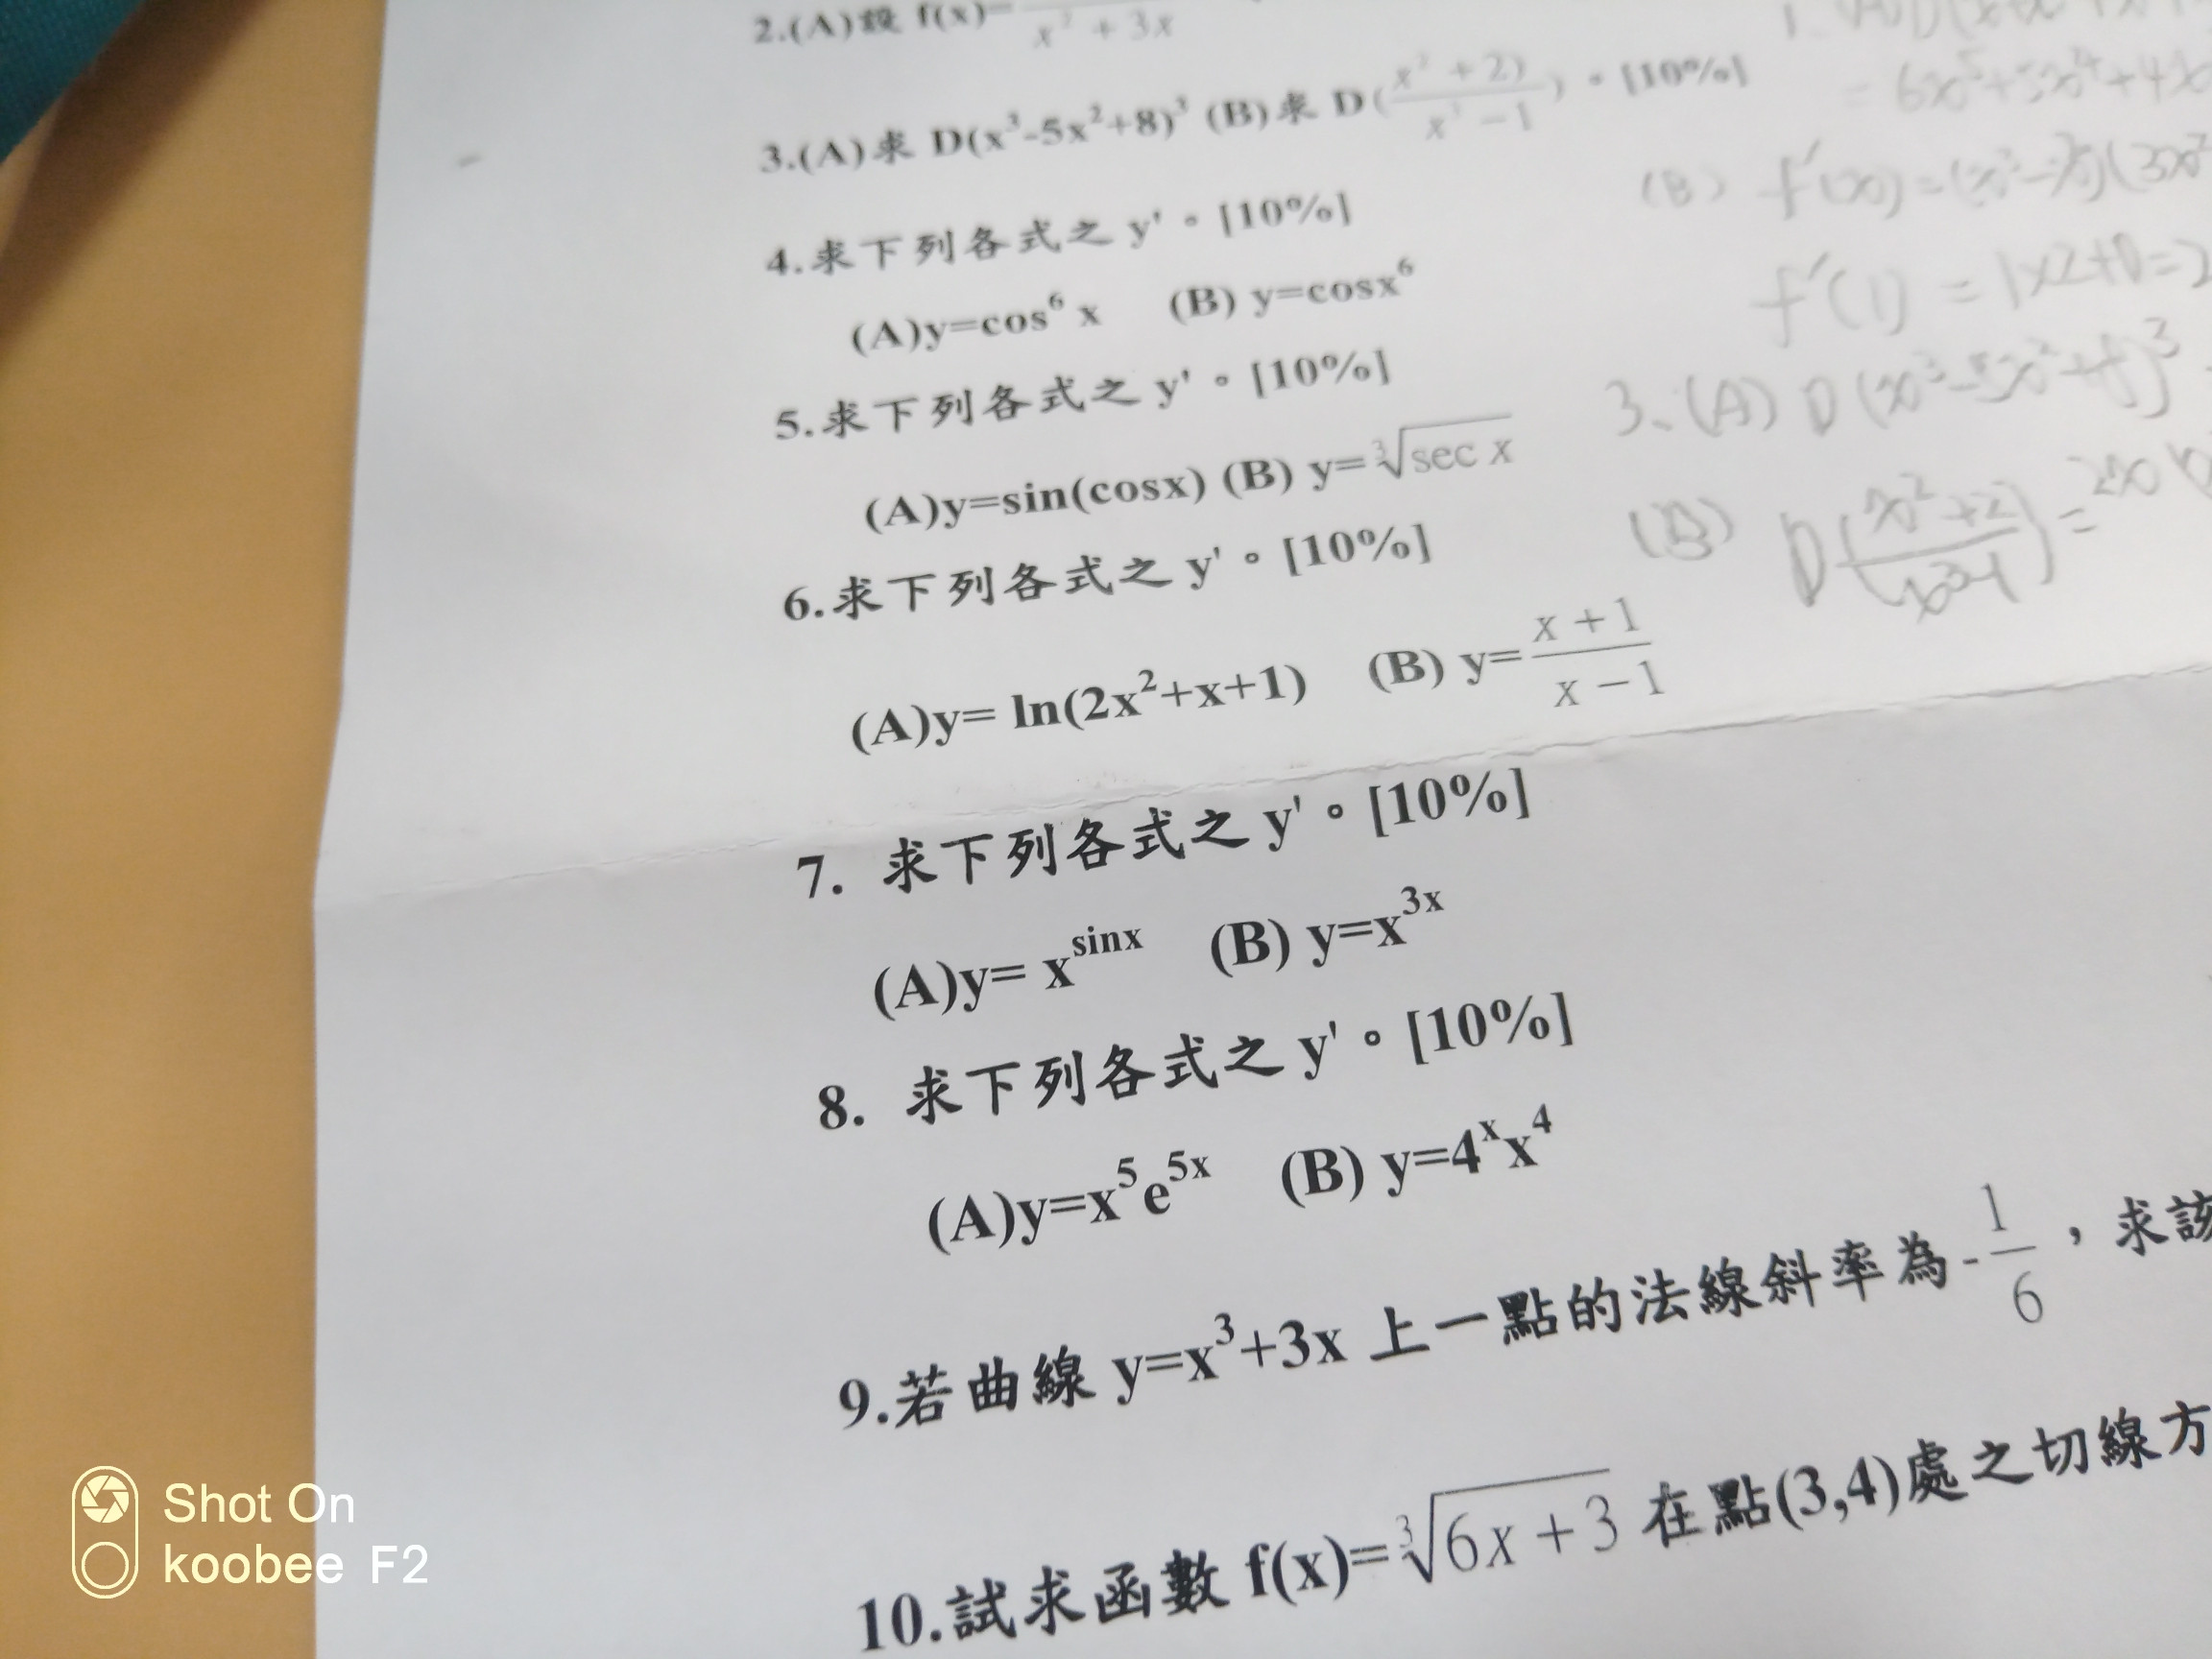 2.(A)設 f(x)=
x² + 3x
3.(A)求 D(x³-5x²+8)³ (B)求 D(x² +2)/(x³ −1)) 。[10%]
4.求下列各式之 y'。[10%]
(A)y=cos⁶ x (B) y=cosx⁶
5.求下列各式之 y'。[10%]
(A)y=sin(cosx) (B) y=³√sec x
6.求下列各式之 y'。[10%]
(A)y= ln(2x²+x+1) (B) y=(x + 1)/(x − 1)
7. 求下列各式之 y'。[10%]
(A)y= x^sinx (B) y=x^3x
8. 求下列各式之 y'。[10%]
(A)y=x⁵e^5x (B) y=4^x x⁴
9.若曲線 y=x³+3x 上一點的法線斜率為-1/6，求該
10.試求函數 f(x)=³√6x + 3 在點(3,4)處之切線方
= 6x⁵+5x⁴+4x
(B) f'(x) =
f'(1) = 1×2+0=2
3、(A) D(x³-5x²+8)³
(B) D(x²+2/x³-1) = 2x
Shot On
koobee F2